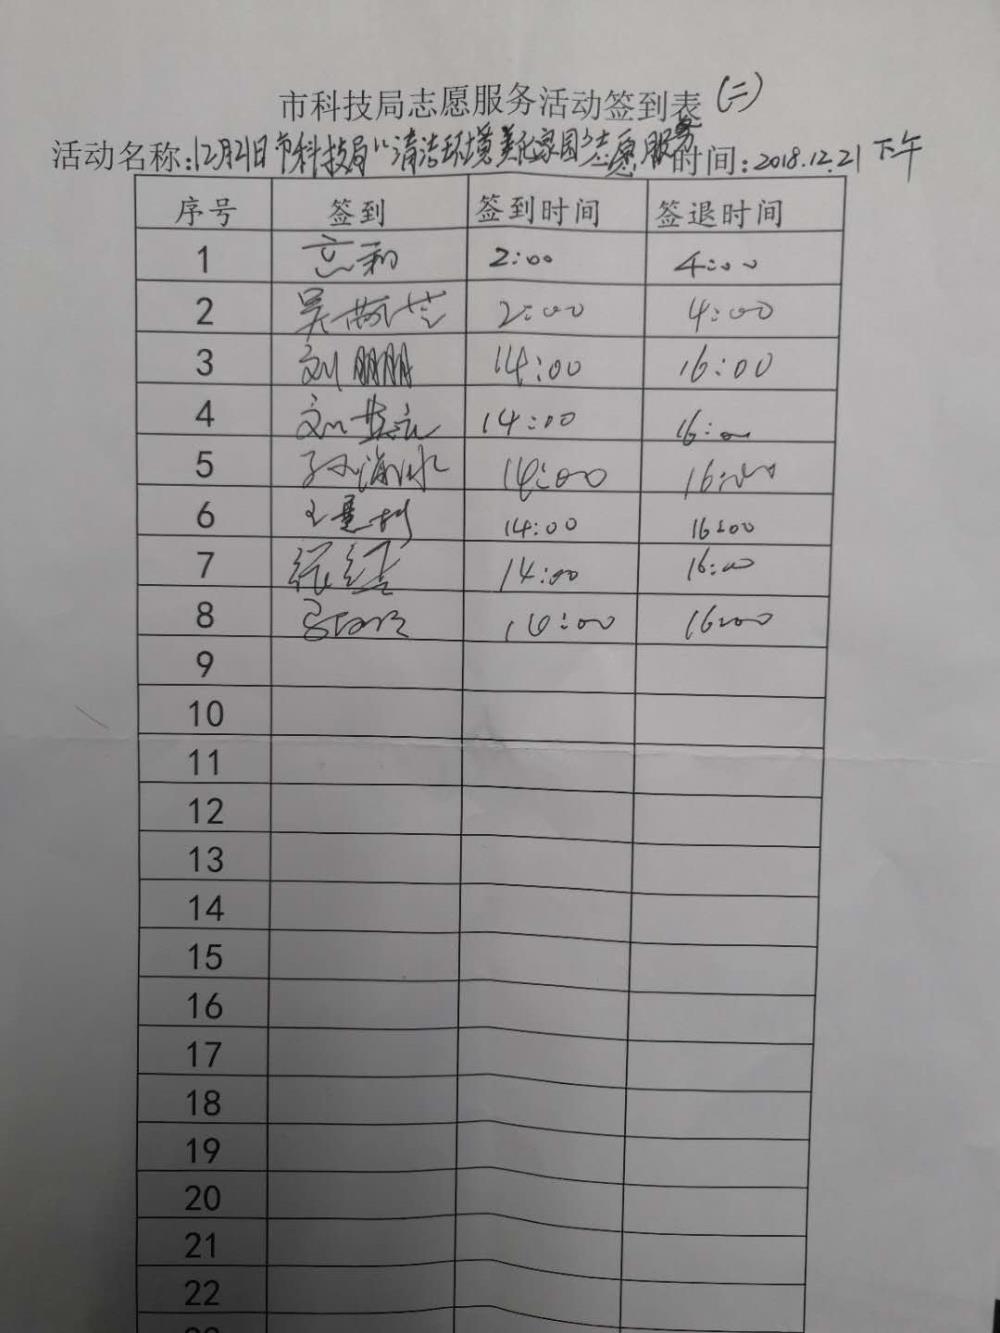 市科技局志愿服务活动签到表(二)
活动名称:12月21日市科技局“清洁环境美化家园”志愿服务 时间:2018.12.21下午
序号 签到 签到时间 签退时间
1 2:00 4:00
2 吴 2:00 4:00
3 刘鹏鹏 14:00 16:00
4 刘 14:00 16:00
5 孙海冰 14:00 16:00
6 王 14:00 16:00
7 张 14:00 16:00
8 14:00 16:00
9
10
11
12
13
14
15
16
17
18
19
20
21
22
23